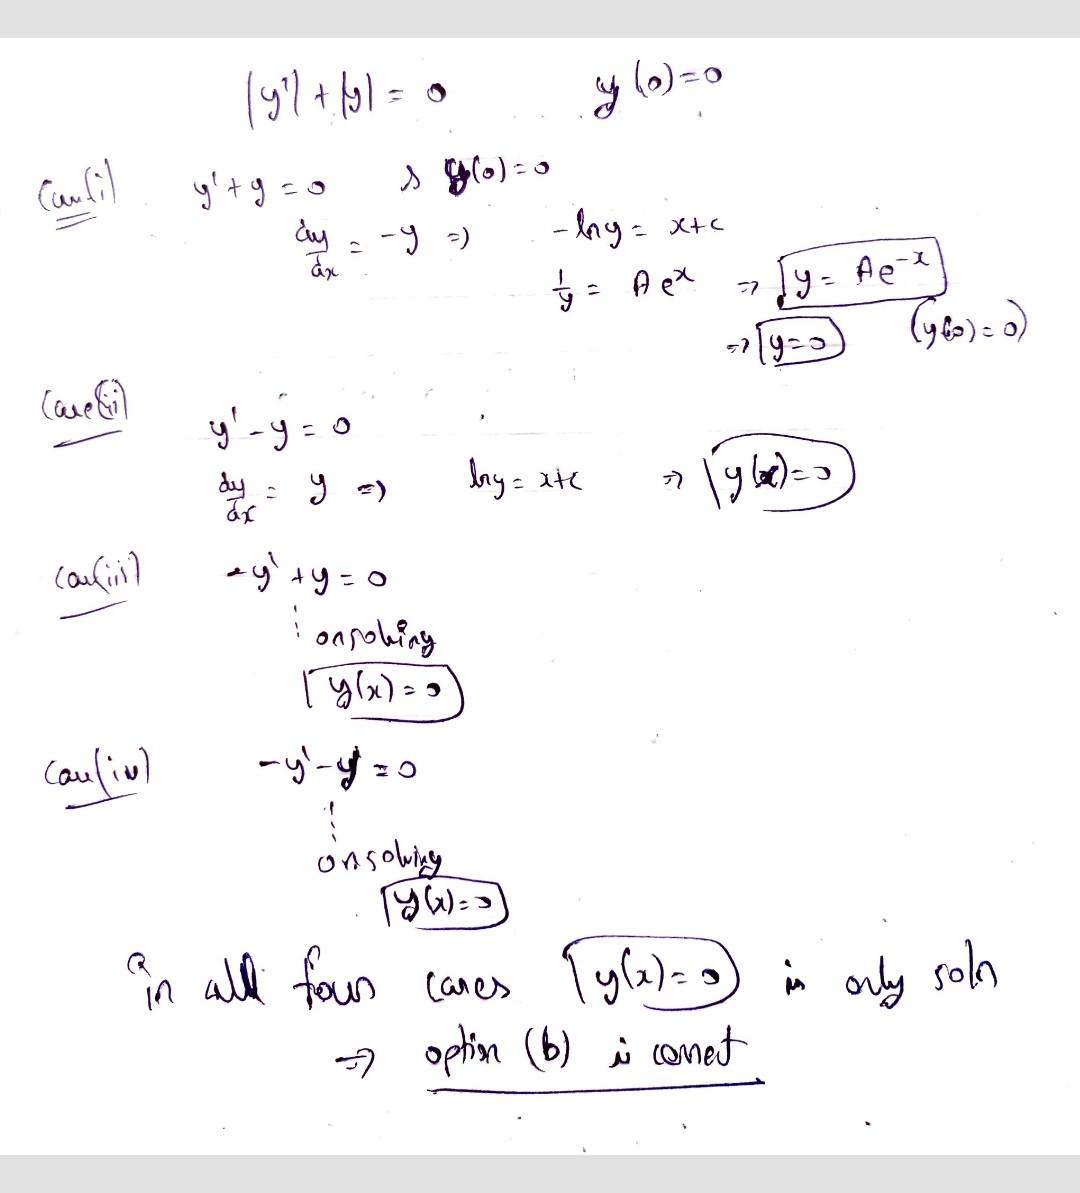 |y'| + |y| = 0 y(0)=0
Case(i) y'+y=0 , y(0)=0
dy/dx = -y => -lny = x+c
1/y = Ae^x => y = Ae^-x
=> y=0 (y(0)=0)
Case(ii)
y'-y=0
dy/dx = y => lny = x+c => y(x)=0
Case(iii) -y'+y=0
on solving
y(x)=0
Case(iv) -y'-y=0
on solving
y(x)=0
in all four cases y(x)=0 is only soln
=> option (b) is correct